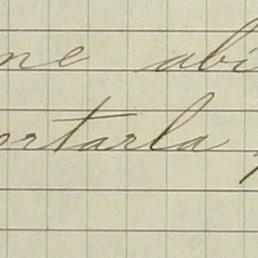 me abi
ortarla